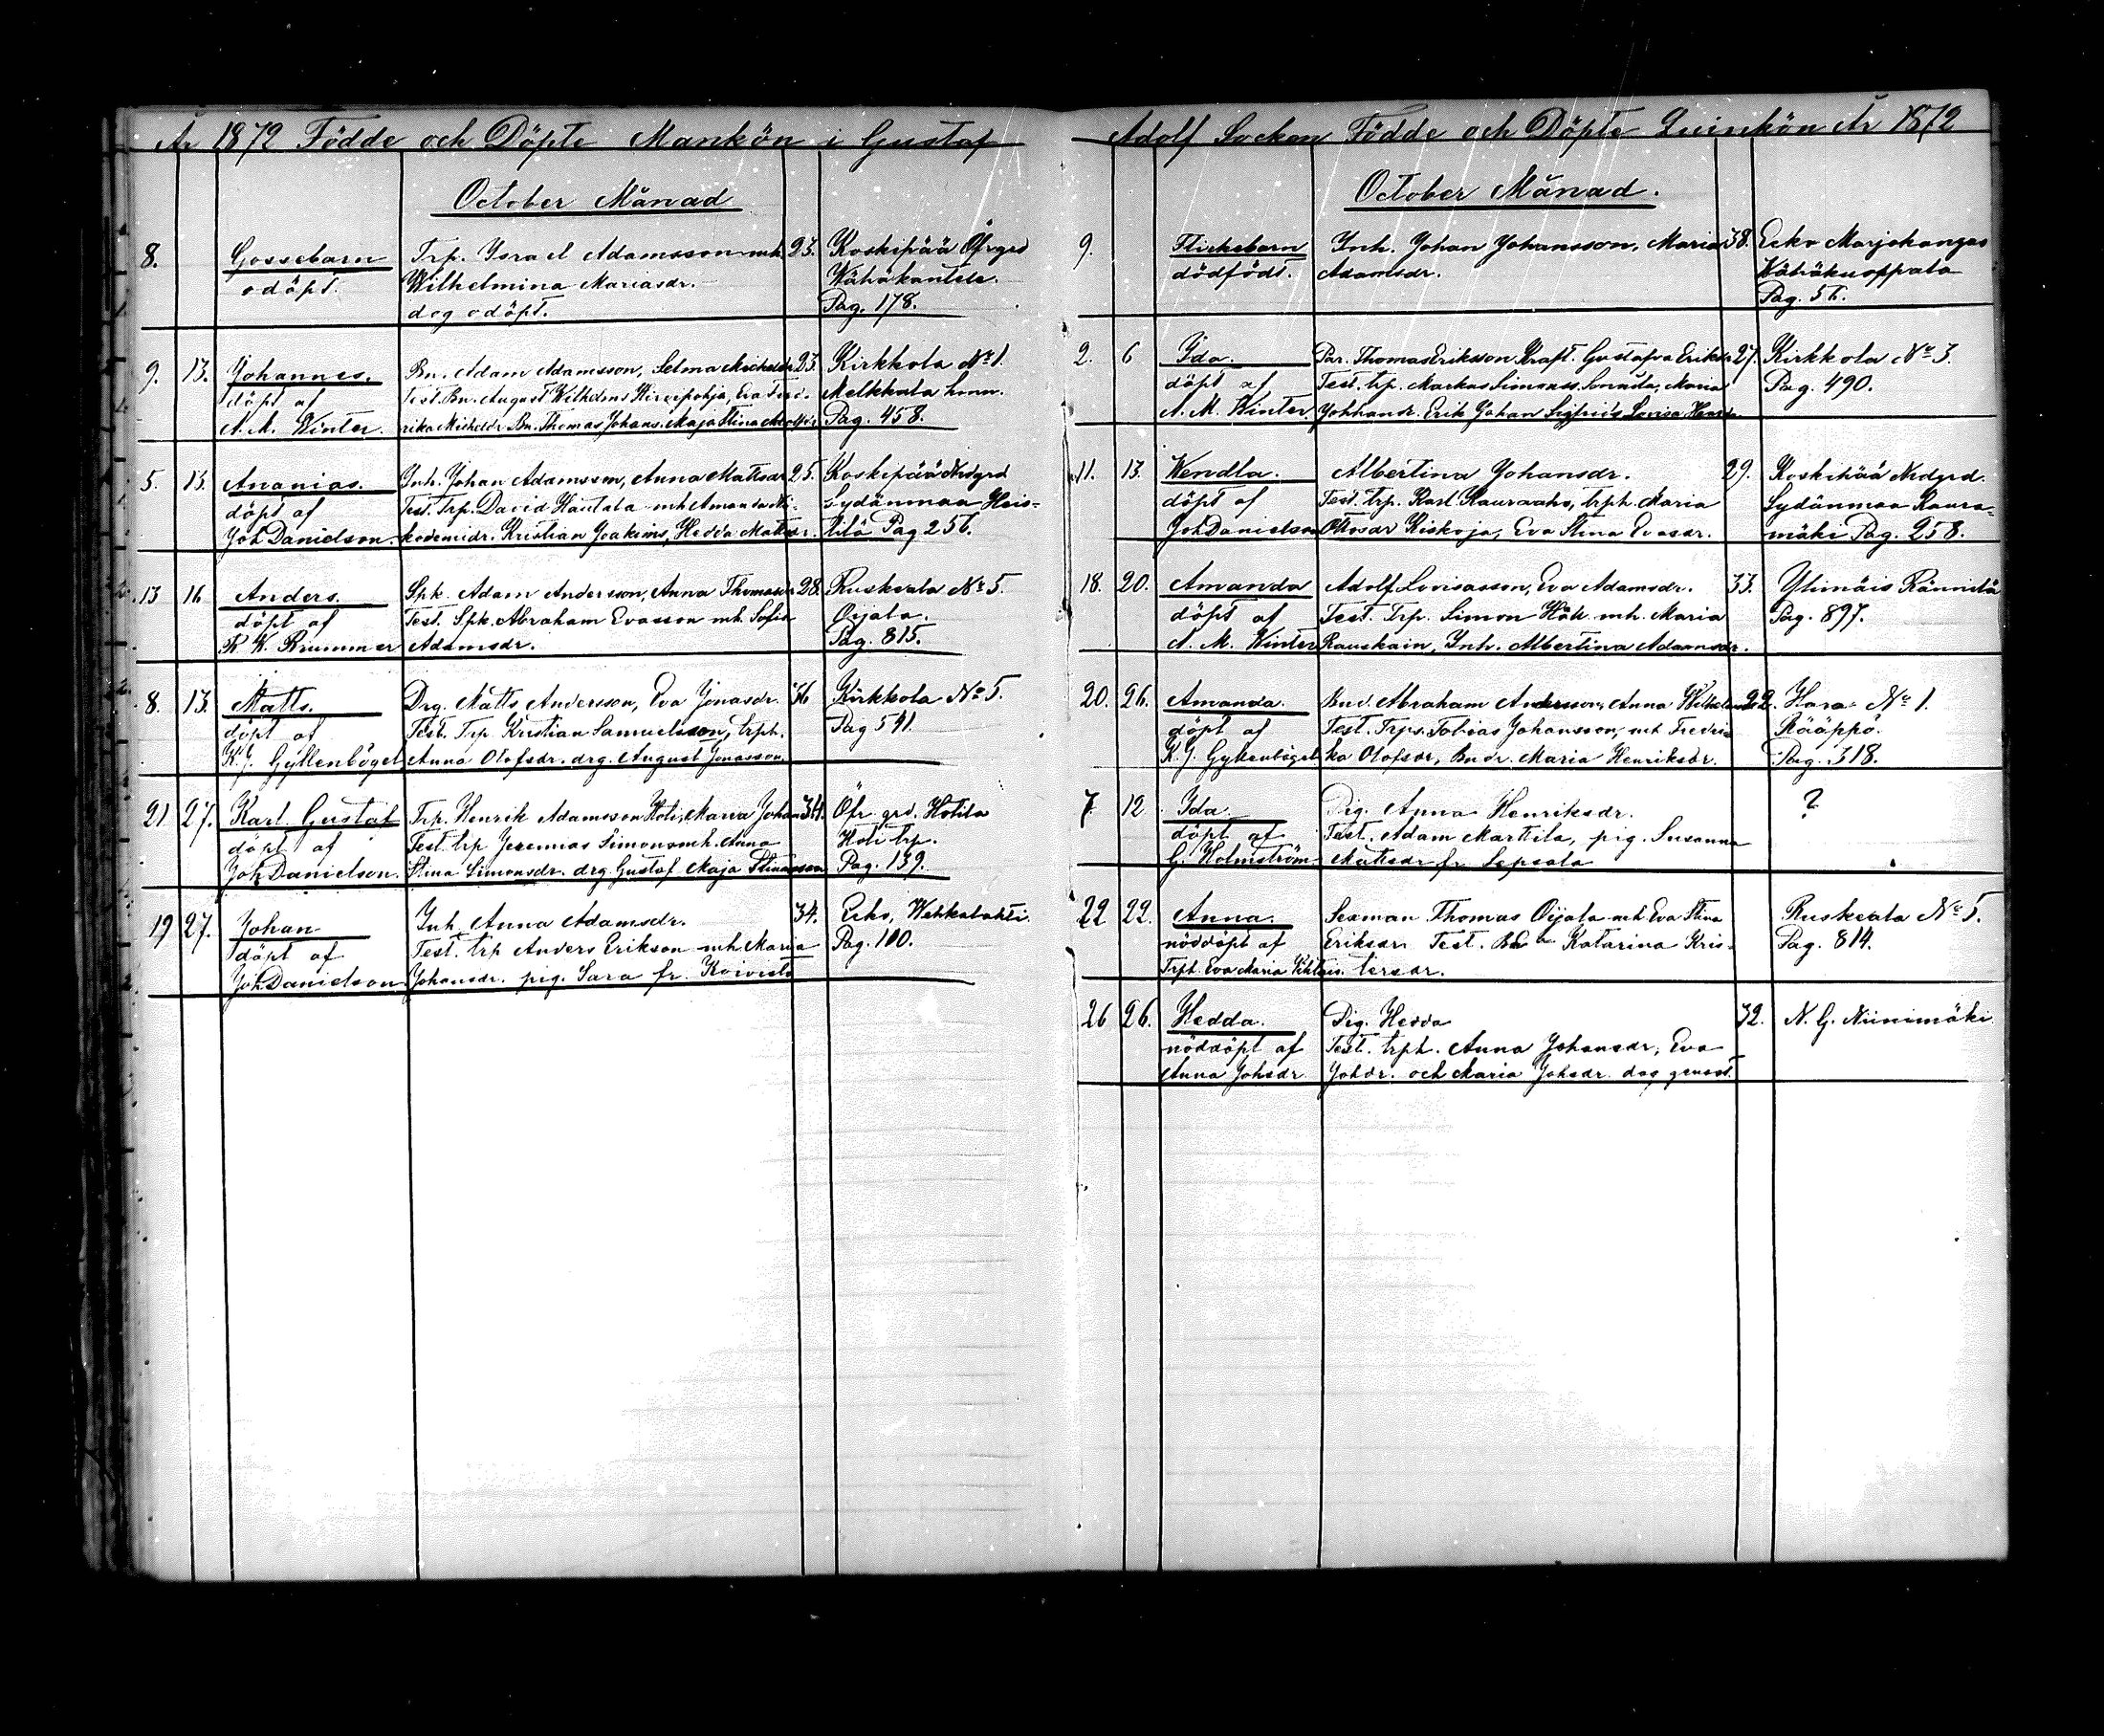 År 1872 Födde och Döpte Mankön i Gustaf
October Månad
8. Gossebarn Trp. Israel Adamsson mh. 23. Koskipää Öfvgrd
odöpt. Wilhelmina Mariasdr. Wähäkantele.
dog odöpt. Pag. 178.
9. 13. Johannes. Bn. Adam Adamsson, Selma Michelsdr 23. Kirkkola No 1.
döpt af Test. Bn. August Wilhelms Hirsipohja, Eva Fred- Melkkola hemm.
A. M. Winter. rika Michelsdr Bn. Thomas Johans. Maja Stina Adolfsdr. Pag. 458.
5. 13. Ananias. Inh. Johan Adamsson, Anna Mattsdr 25. Koskipää Nedgrd
döpt af Test. Trp. David Hautala mh Amanda Ni- Sydänmaa Heis-
Joh Danielson. kodemidr. Kristian Joakims, Hedda Mattsdr. tilä Pag 256.
13 16 Anders. Spk. Adam Andersson, Anna Thomasdr 28. Ruskeala No 5.
döpt af Test. Spk. Abraham Evasson mh. Sofia Oijala.
K W. Brummer Adamsdr. Pag. 815.
8. 13. Matts. Drg. Matts Andersson, Eva Jonasdr. 36 Kirkkola No 5.
döpt af Test. Trp Kristian Samuelsson, trph. Pag 541.
K. J. Gyllenbögel Anna Olofsdr. drg. August Jonasson
21 27. Karl Gustaf Trp. Henrik Adamsson Hoti, Maria Johan 34. Öfr. grd. Hotila
döpt af Test. trp Jeremias Simons mh. Anna Hoti trp.
Joh Danielson. Stina Simonsdr. drg. Gustaf Maja Stinasson Pag. 139.
19 27. Johan Inh. Anna Adamsdr. 34. Ecko, Wehkalahti.
döpt af Test. trp Anders Erikson mh. Maria Pag. 100.
Joh Danielson Johansdr. pig. Sara fr. Koivisto
Adolf Socken Födde och Döpte Quinkön År 1872
October Månad.
9. Flickebarn Inh. Johan Johansson, Maria 38. Ecko Marjokangas
dödfödt. Adamsdr. Wähäkuoppala
Pag. 56.
2. 6 Ida. Par. Thomas Eriksson Kraft. Gustafva Eriksdr 27. Kirkkola No 3.
döpt af Test. trp. Markus Simonss. Maria Pag. 490.
A. M. Winter. Johhandr. Erik Johan Sigfrids Lovisa
11. 13. Wendla. Albertina Johansdr. 29. Koskipää Nedgrd.
döpt af Test. trp. Karl Kauraaho, trph. Maria Sydänmaa Kaura-
Joh Danielson Ottosdr Kiskoja, Eva Stina Evasdr. mäki Pag. 258.
18. 20. Amanda Adolf Lovisasson, Eva Adamsdr. 33. Ylinäis Rännilä
döpt af Test. Trp. Simon Häk mh. Maria Pag. 897.
A. M. Winter Rauskain, Inh. Albertina Adamsdr.
20. 26. Amanda. Bnd. Abraham Andersson, Anna Wilhelmsdr 22. Hara No 1.
döpt af Test. Trp. Tobias Johansson, mh Fredri- Rääppö.
K. J. Gyllenbögel ka Olofsdr, Bndr. Maria Henriksdr. Pag. 318.
7. 12 Ida. Pig. Anna Henriksdr. ?
döpt af Test. Adam Marttila, pig. Susanna
G. Holmström Mattsdr fr. Sepsala
22 22. Anna. Sexman Thomas Oijala mh Eva Stina Ruskeala No 5.
nöddöpt af Eriksdr. Test. Katarina Kris- Pag. 814.
Trph. Eva Maria tersdr.
26 26. Hedda. Pig. Hedda 32. N. G. Niinimäki
nöddöpt af Test. trph. Anna Johansdr, Eva
Anna Johsdr. Johdr. och Maria Johsdr. dog genast.